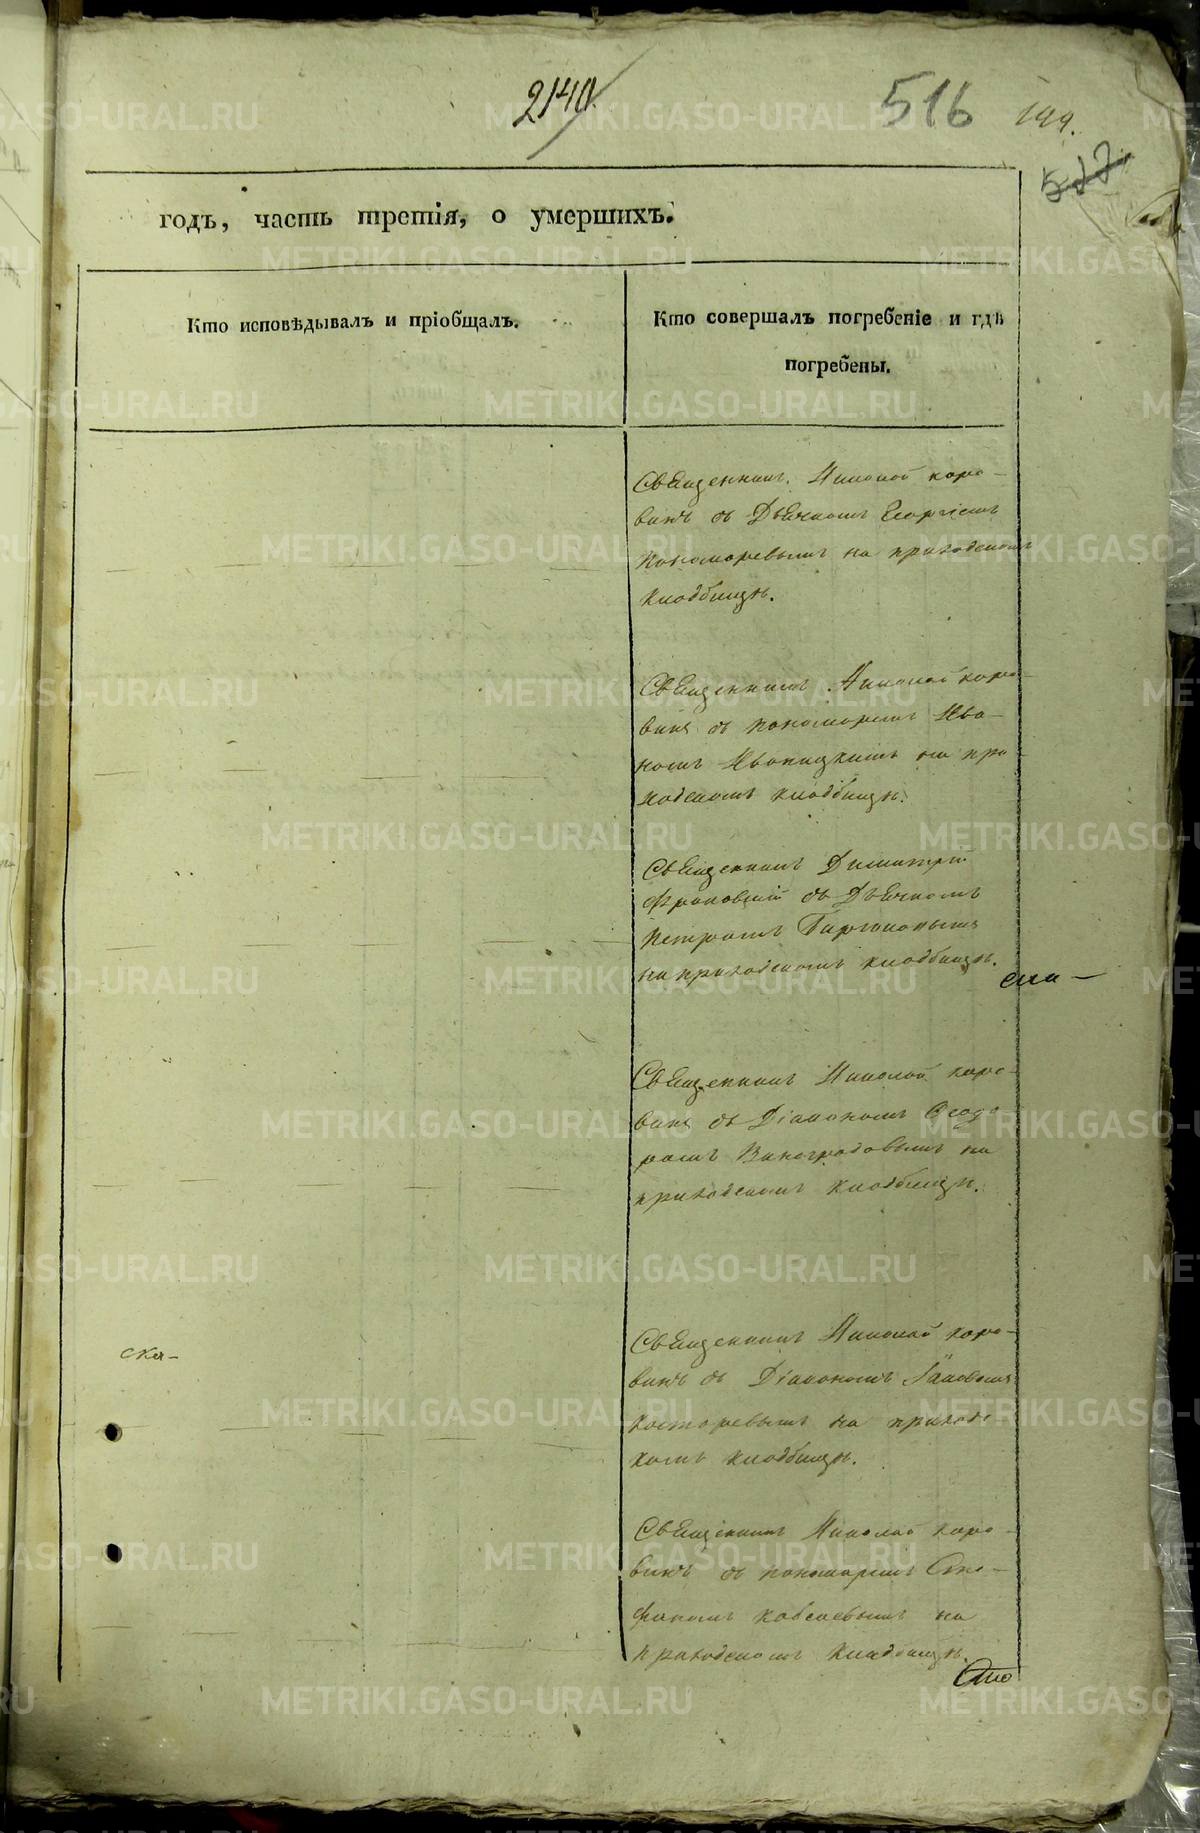 2140.
516
199.
годъ, часть третія, о умершихъ.
Кто исповѣдывалъ и пріобщалъ.
Кто совершалъ погребеніе и гдѣ
погребены.
Священникъ Николай Коро-
винъ съ Дьячкомъ Георгіемъ
Пономоревымъ на приходскомъ
кладбищѣ.
Священникъ Николай Коро-
винъ съ пономаремъ Ива-
номъ Ивановскимъ на при-
ходскомъ кладбищѣ.
Священникъ Димитрій
Фроловскій съ Дьячкомъ
Петромъ
на приходскомъ кладбищѣ.
Священникъ Николай Коро-
винъ съ Діакономъ Ѳеодо-
ромъ Виноградовымъ на
приходскомъ кладбищѣ.
ска-
Священникъ Николай Коро-
винъ съ Діакономъ Іаковомъ
на приходс-
комъ кладбищѣ.
Священникъ Николай Коро-
винъ съ пономаремъ Сте-
фаномъ на
приходскомъ кладбищѣ.
METRIKI.GASO-URAL.RU